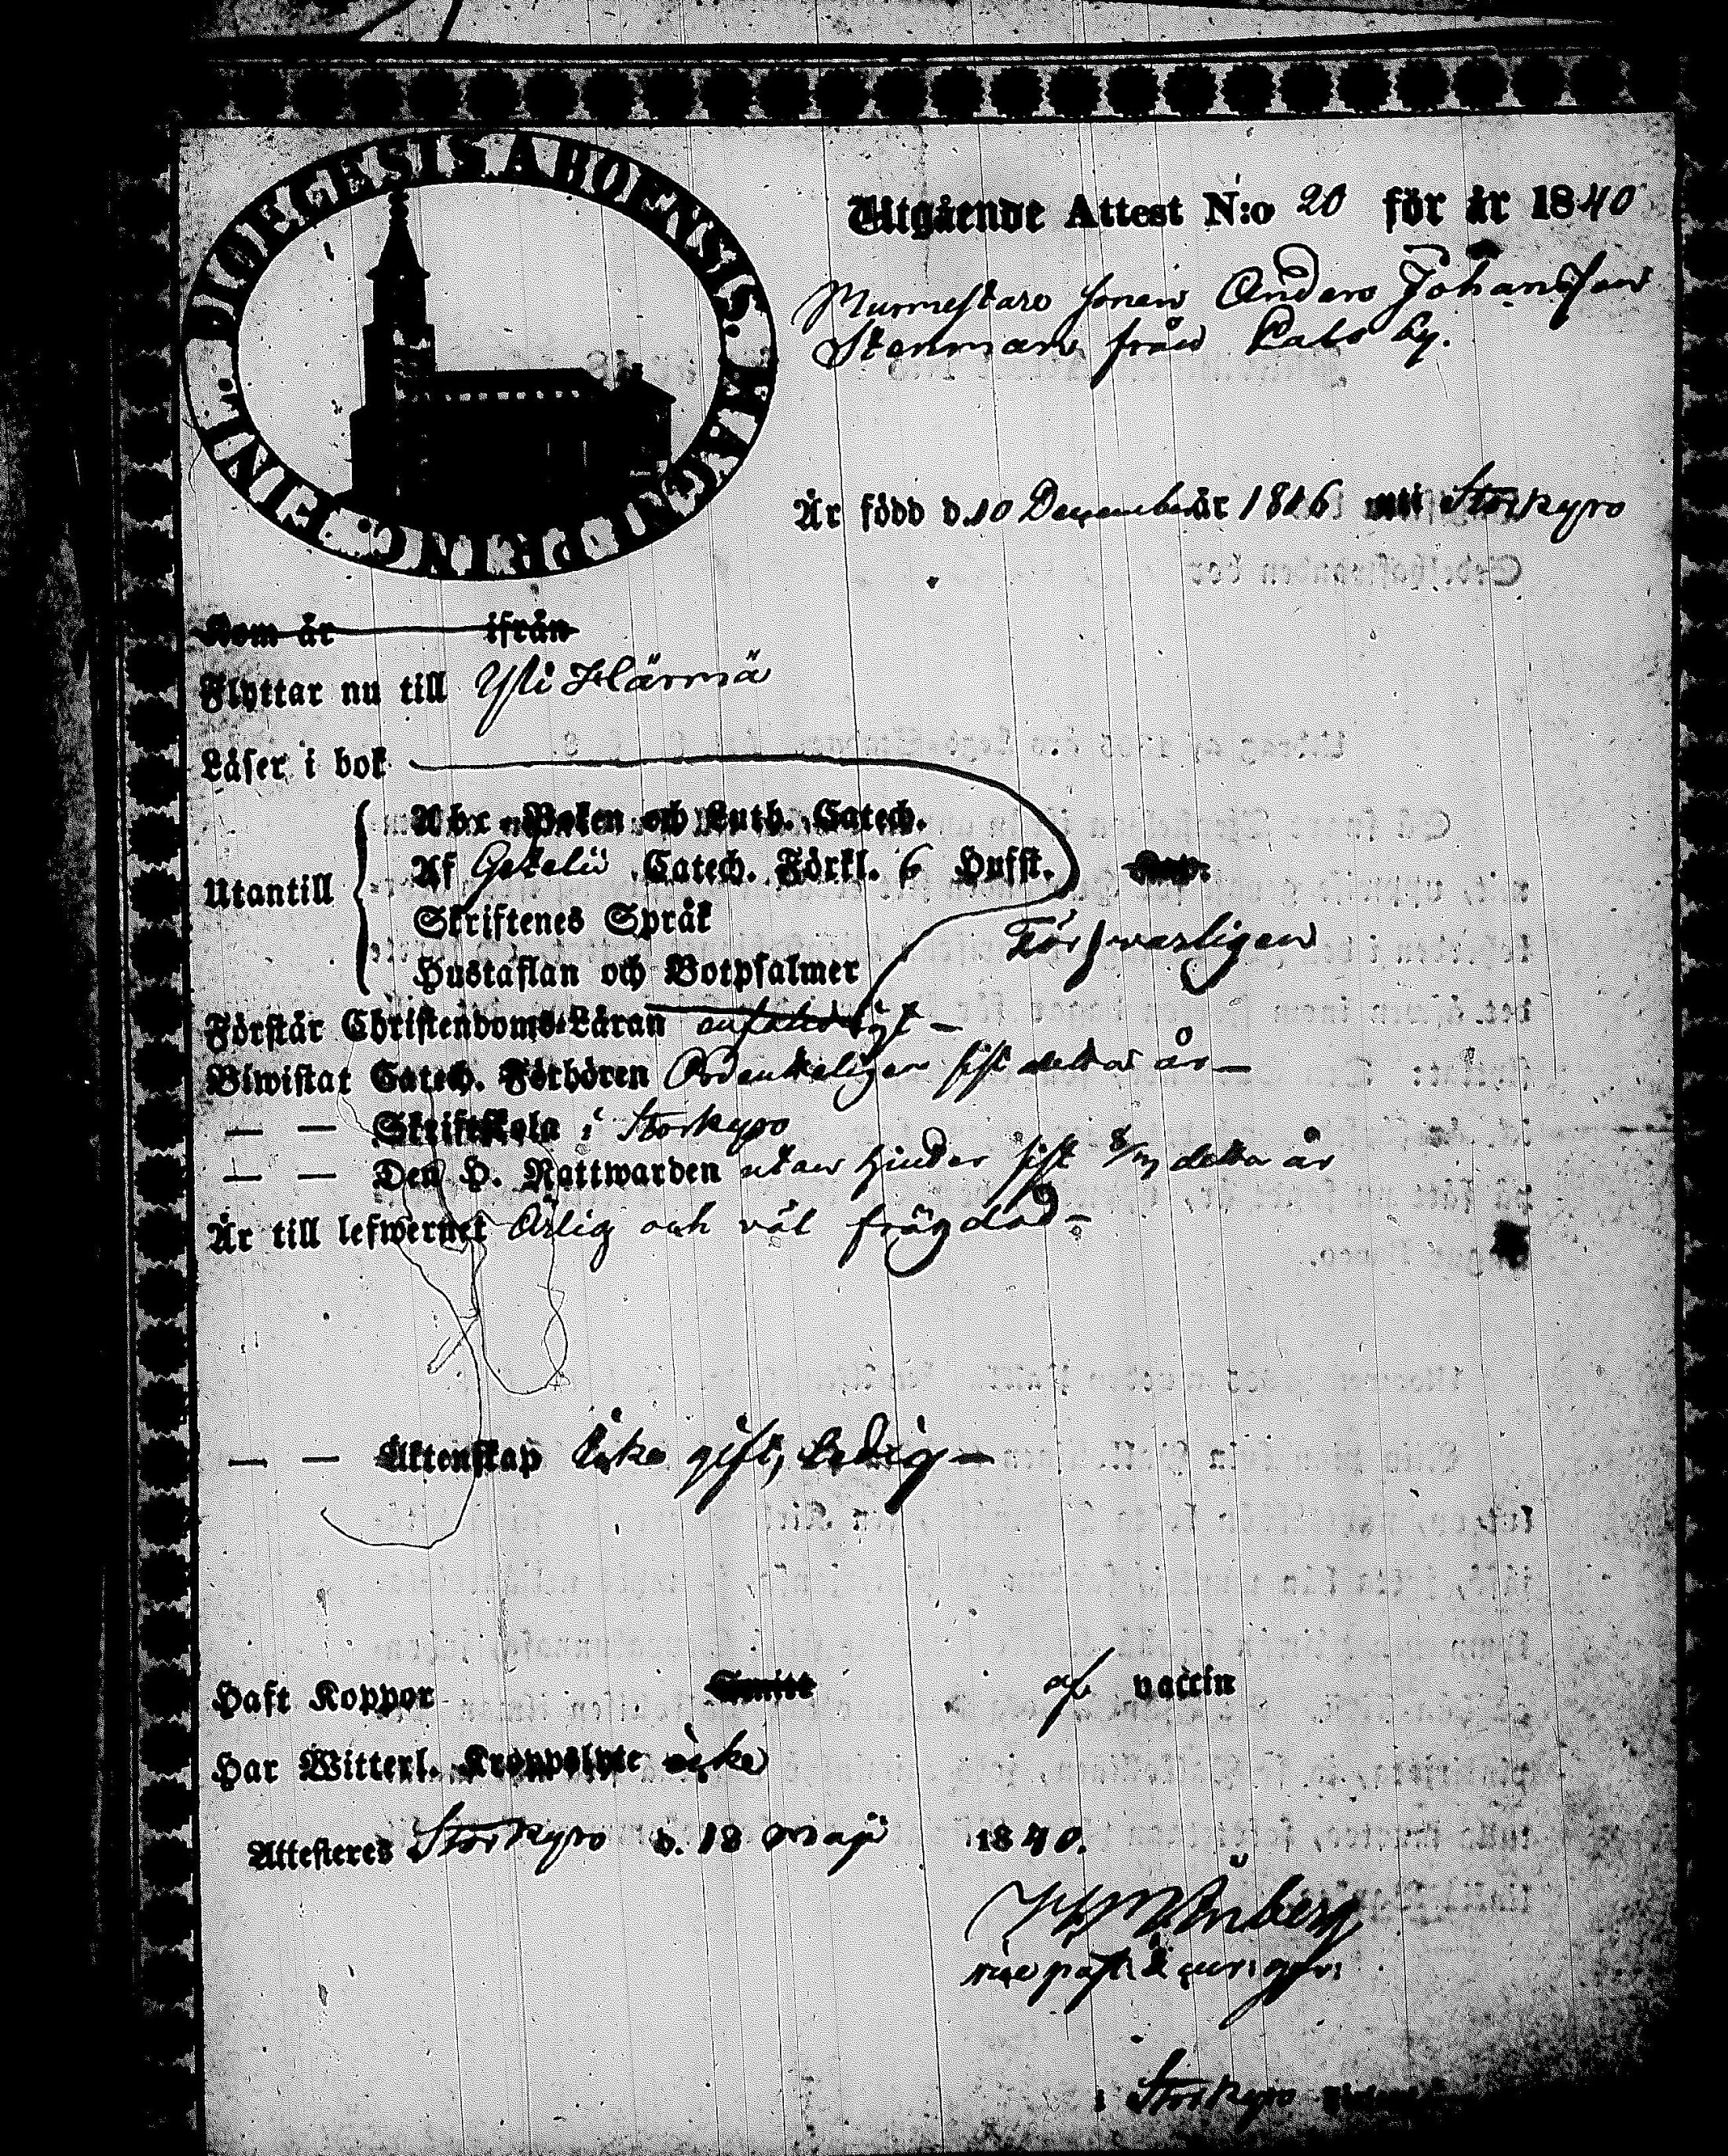 DIOECESIS ABOENSIS. MAGNI PRINC. FINL.
Utgående Attest N:o 20 för år 1840
Murmestare sonen Anders Johansson
Stenman från Kalsby.
Är född d. 10 December år 1816 uti Storkyro
Kom år ifrån
Flyttar nu till Ylihärmä
Läser i bok
Abc-Boken och Luth. Catech.
Utantill
Af Gezelii Catech. Förkl. 6 Hufst. Cap.
Skriftenes Språk
Försvarligen
Hustaflan och Botpsalmer
Förstår Christendoms-Läran enfaldigt
Biwistat Catech. Förhören Ordenteligen sist detta år
— — Skriftskola i Storkyro
— — Den H. Nattwarden utan hinder sist detta år
Är till lefwernet Ärlig och väl frägdad
— — Äktenskap Icke gift, ledig
Haft Koppor Smitt af vaccin
Har Witterl. Kroppslyte icke
Attesteres Storkyro d. 18 Maji 1840.
vice past.
i Storkyro